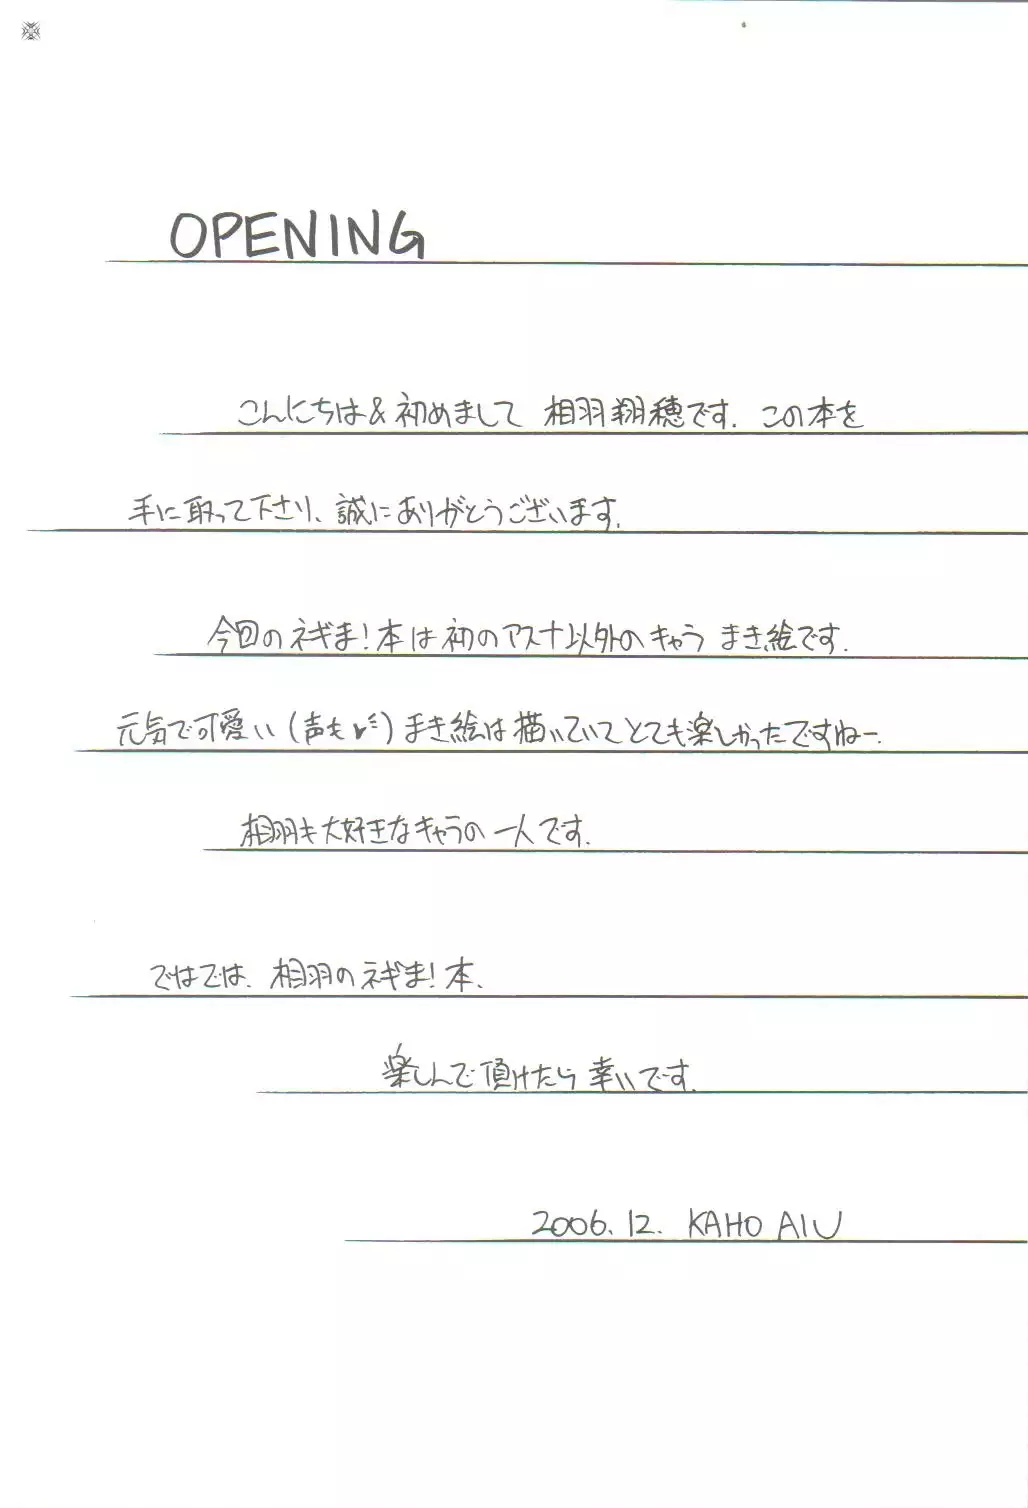 OPENING
こんにちは&初めまして 相羽翔穂です. この本を
手に取って下さり、誠にありがとうございます.
今回のネギま!本は初のアスナ以外のキャラ まき絵です.
元気で可愛い(声も♥)まき絵は描いていてとても楽しかったですねー.
相羽も大好きなキャラの一人です.
ではでは、相羽のネギま!本、
楽しんで頂けたら幸いです.
2006.12. KAHO AIU